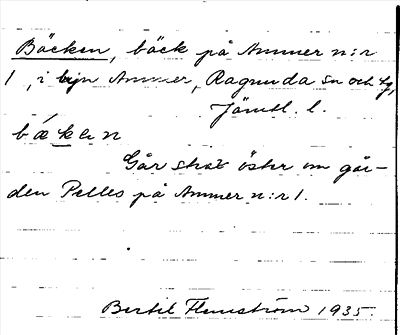 Bäcken, bäck på Ammer n:r
1, i byn Ammer, Ragunda sn och tg,
Jämtl. l.
bæken
Går strax öster om går-
den Pelles på Ammer n:r 1.
Bertil Flemström 1935.